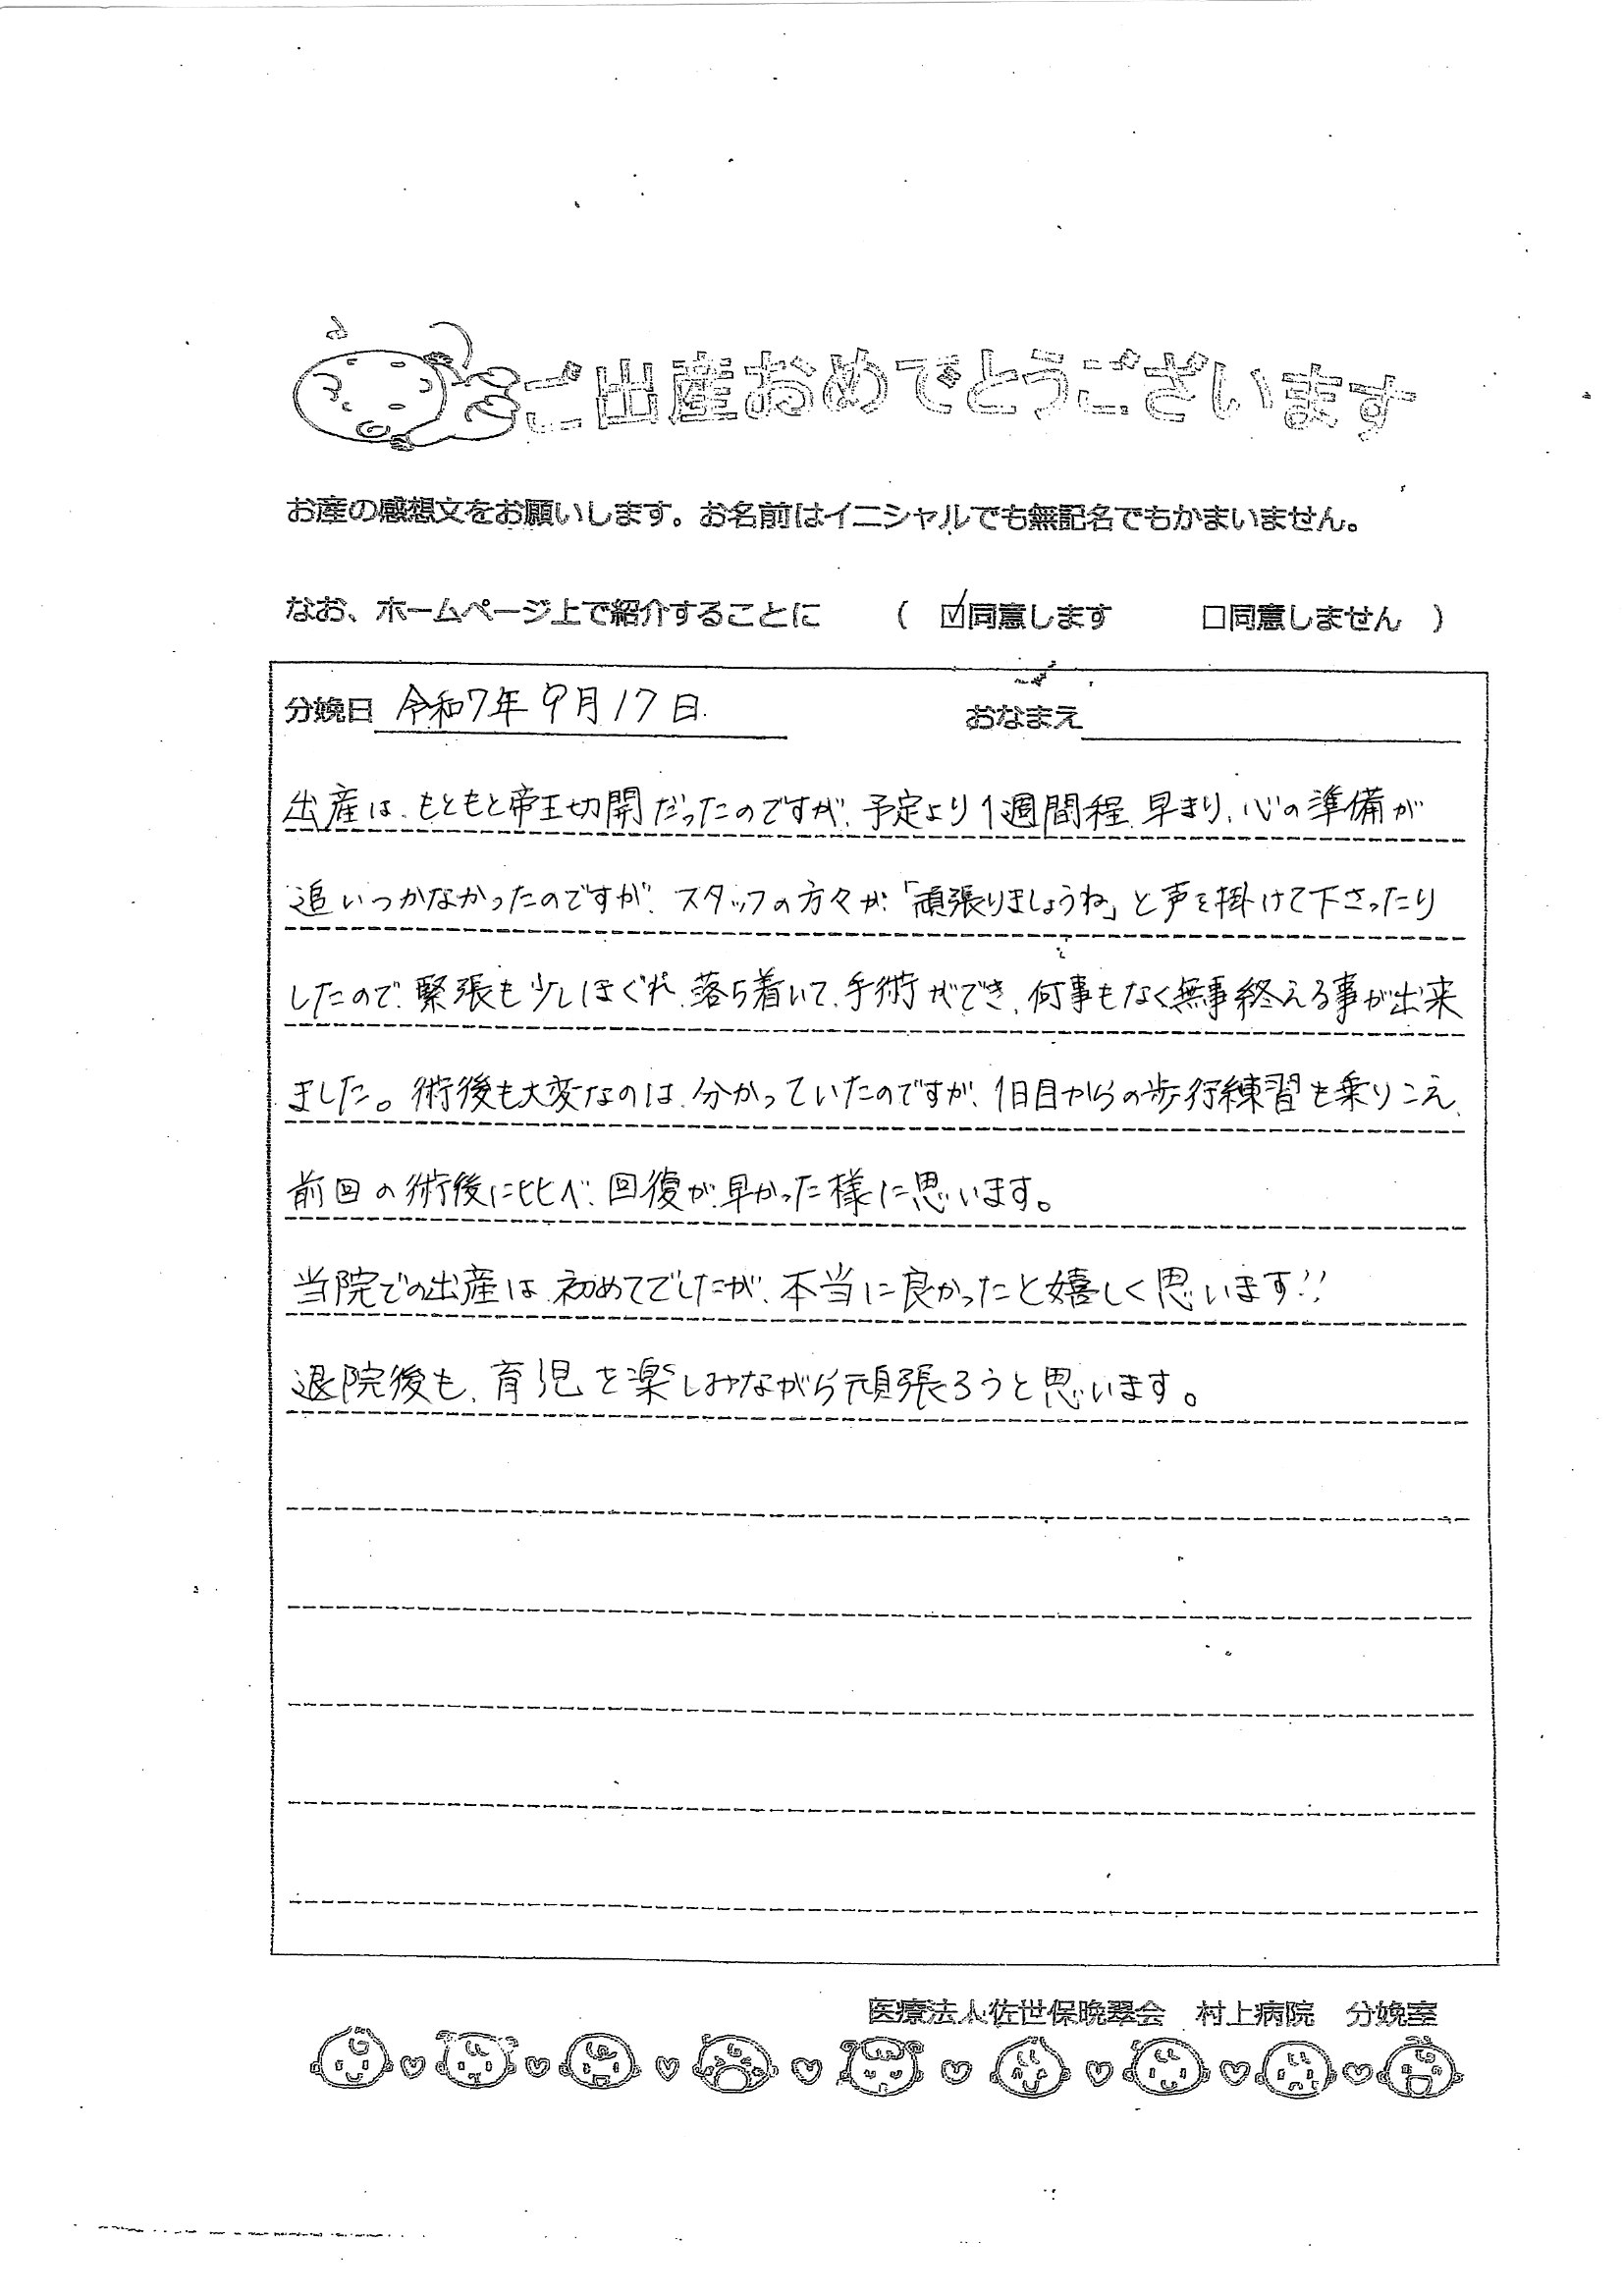 ご出産おめでとうございます
お産の感想文をお願いします。お名前はイニシャルでも無記名でもかまいません。
なお、ホームページ上で紹介することに （ ☑同意します □同意しません ）
分娩日 令和7年9月17日. おなまえ
出産は、もともと帝王切開だったのですが、予定より1週間程、早まり、心の準備が
追いつかなかったのですが、スタッフの方々が、「頑張りましょうね」と声を掛けて下さったり
したので、緊張も少しほぐれ、落ち着いて、手術ができ、何事もなく無事終える事が出来
ました。術後も大変なのは、分かっていたのですが、1日目からの歩行練習も乗りこえ、
前回の術後に比べ、回復が、早かった様に思います。
当院での出産は、初めてでしたが、本当に良かったと嬉しく思います!!
退院後も、育児を楽しみながら頑張ろうと思います。
医療法人佐世保晩翠会 村上病院 分娩室